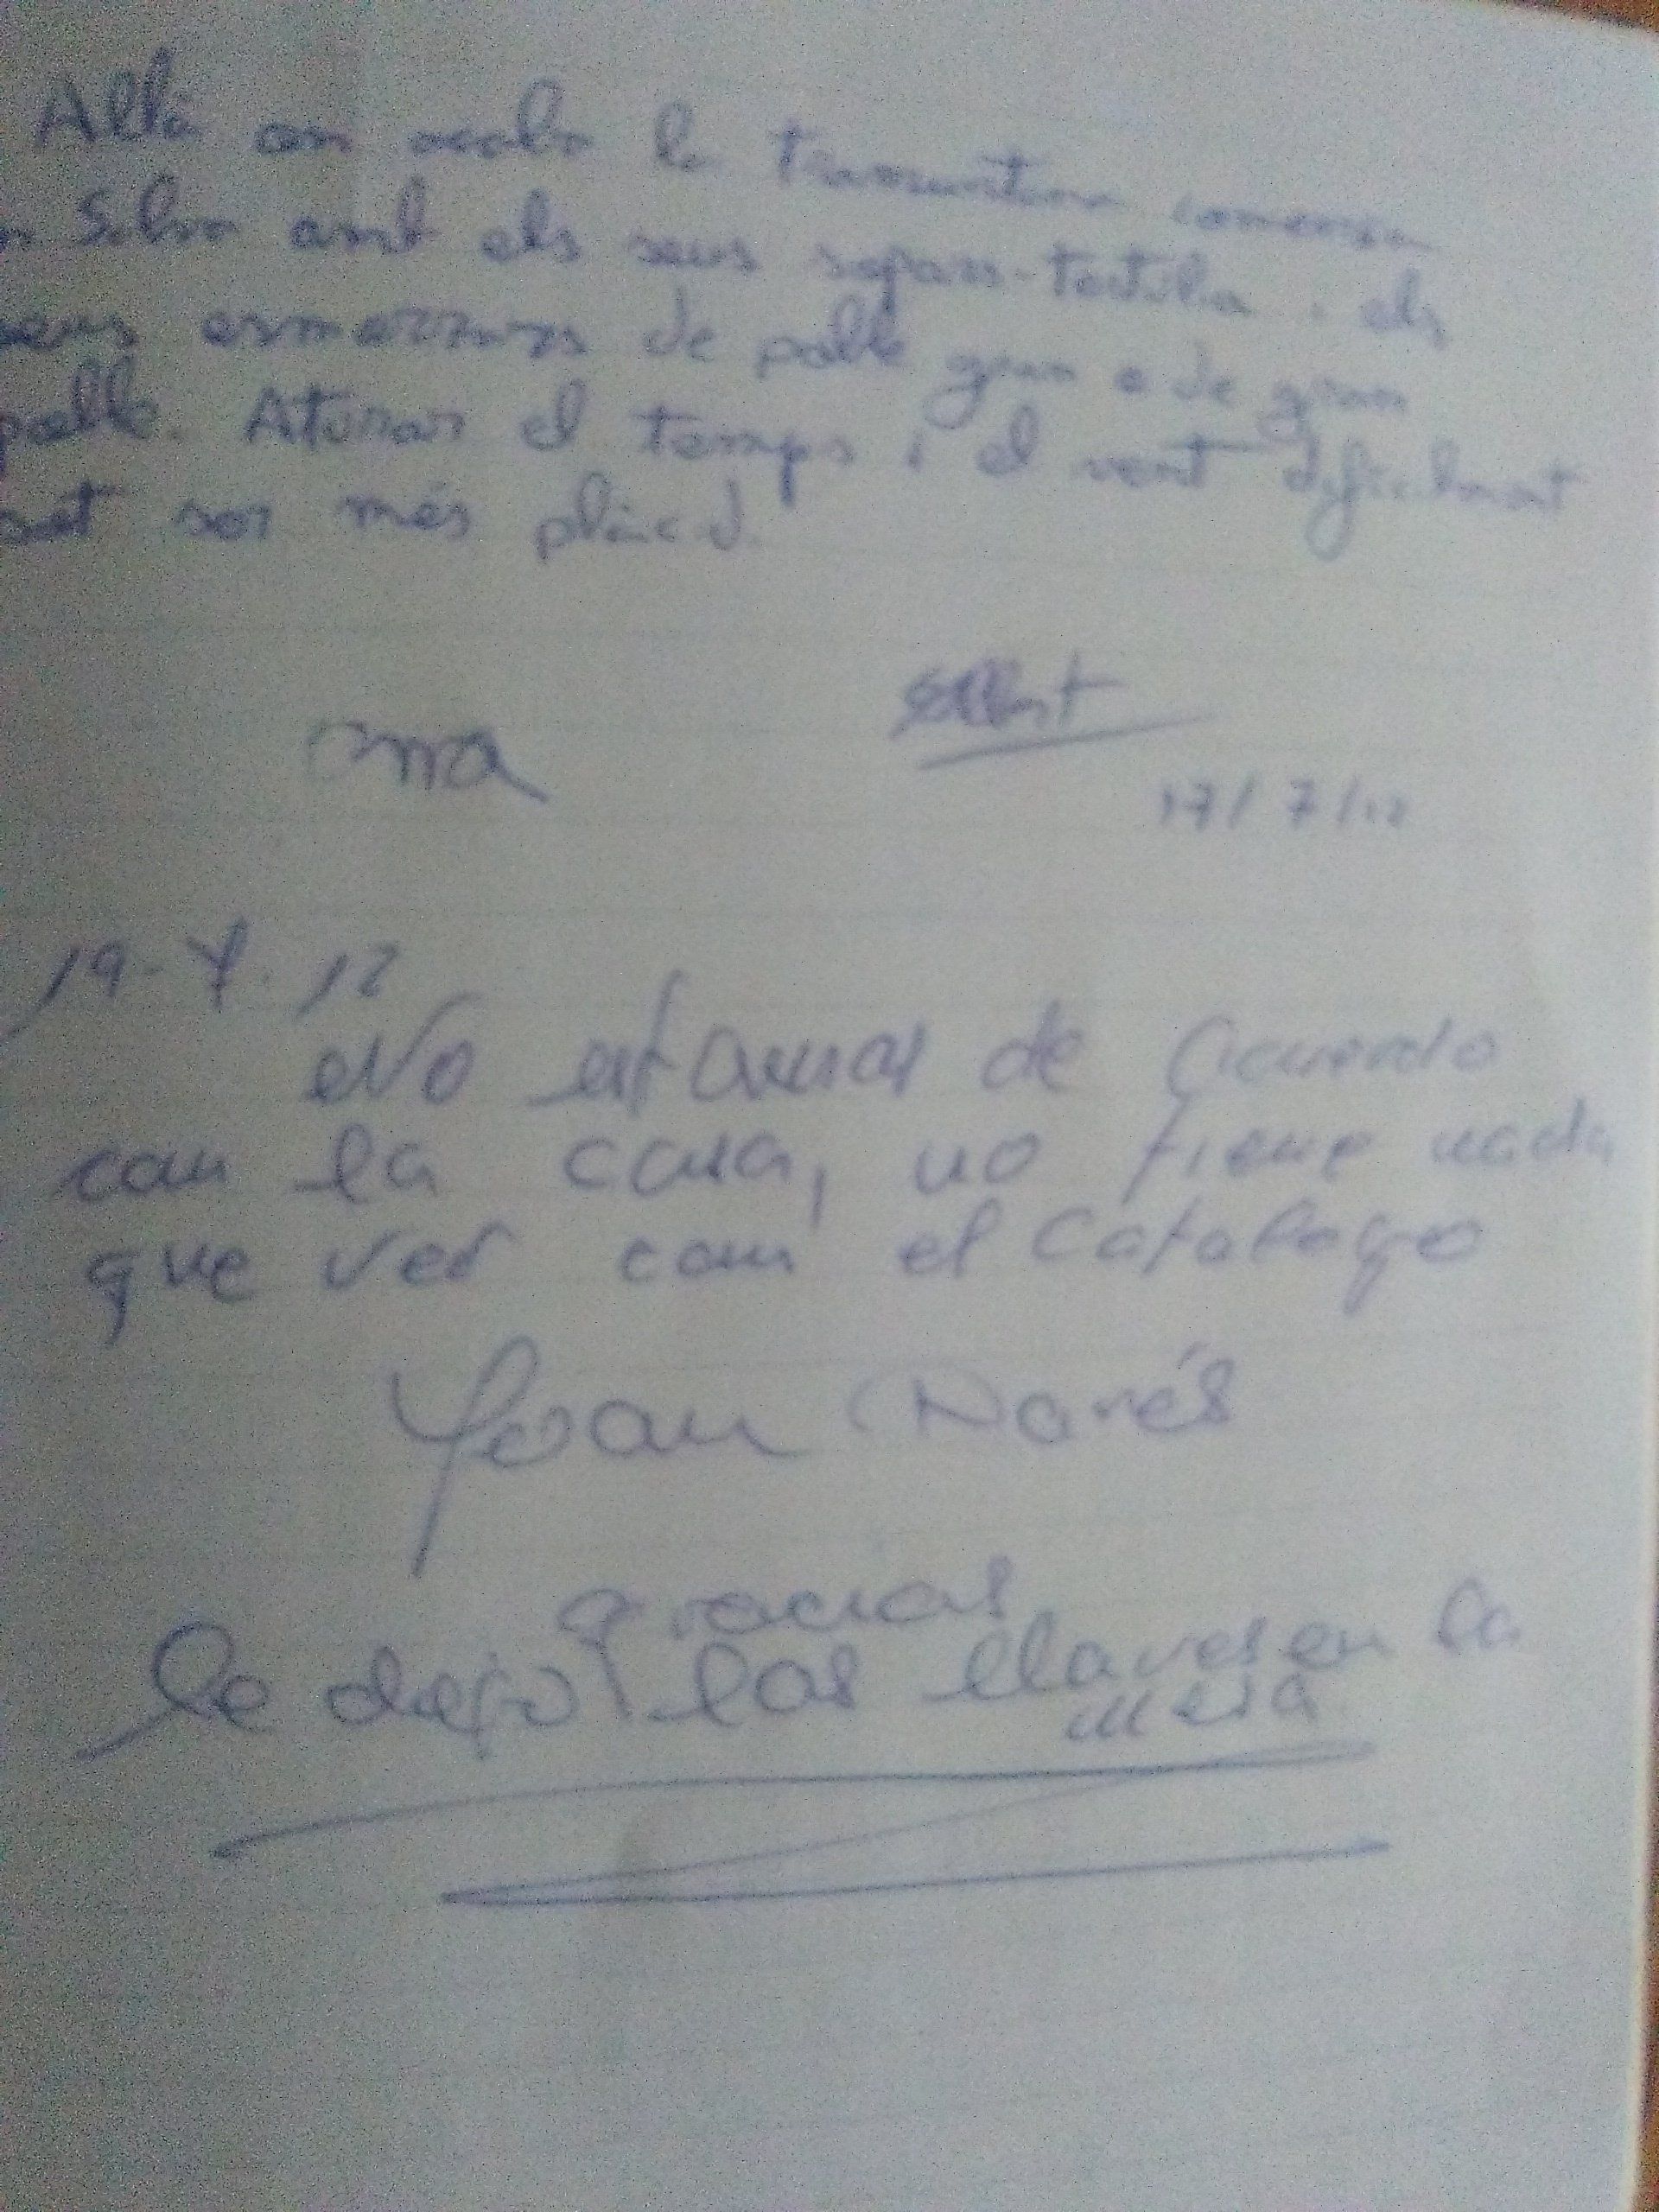 Allà on acaba la tramuntana comença
Silva amb els seus sopars-tertúlia i els
seus esmorzars de poble gran o de gran
poble. Aturar el temps i el vent difícilment
pot ser més plàcid.
Anna
Albert
17/7/12
19-7-12
No estamos de acuerdo
con la casa, no tiene nada
que ver con el Catalogo
Joan
gracias
le dejo las llaves en la
mesa